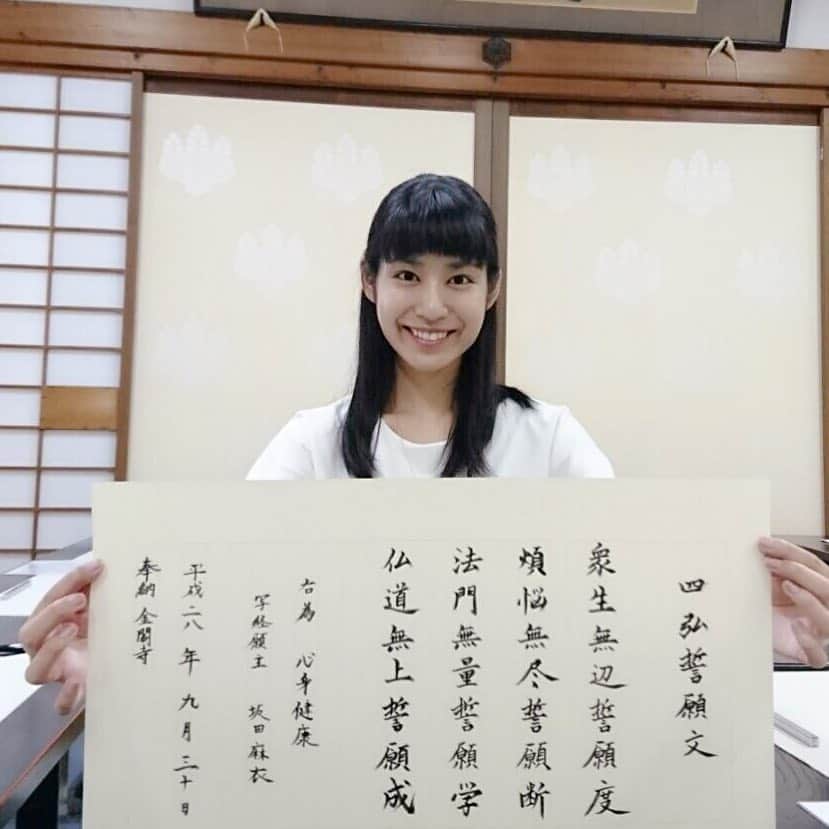 四弘誓願文
衆生無辺誓願度
煩悩無尽誓願断
法門無量誓願学
仏道無上誓願成
右為 心身健康
写経願主 坂田麻衣
平成二八年九月三十日
奉納 金閣寺